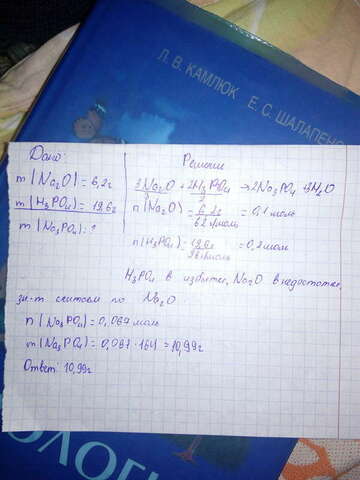 Л. В. КАМЛЮК Е. С. ШАЛАПЕНО
Дано:
m(Na2O)=6,2г
m(H3PO4)=19,6г
m(Na3PO4)-?
Решение
3Na2O+2H3PO4→2Na3PO4+3H2O
n(Na2O)=6,2г/62г/моль=0,1 моль
n(H3PO4)=19,6г/98г/моль=0,2 моль
H3PO4 в избытке, Na2O в недостатке,
зн-т считаем по Na2O
n(Na3PO4)=0,067 моль
m(Na3PO4)=0,067·164=10,99г
Ответ: 10,99г
ОЛОГ